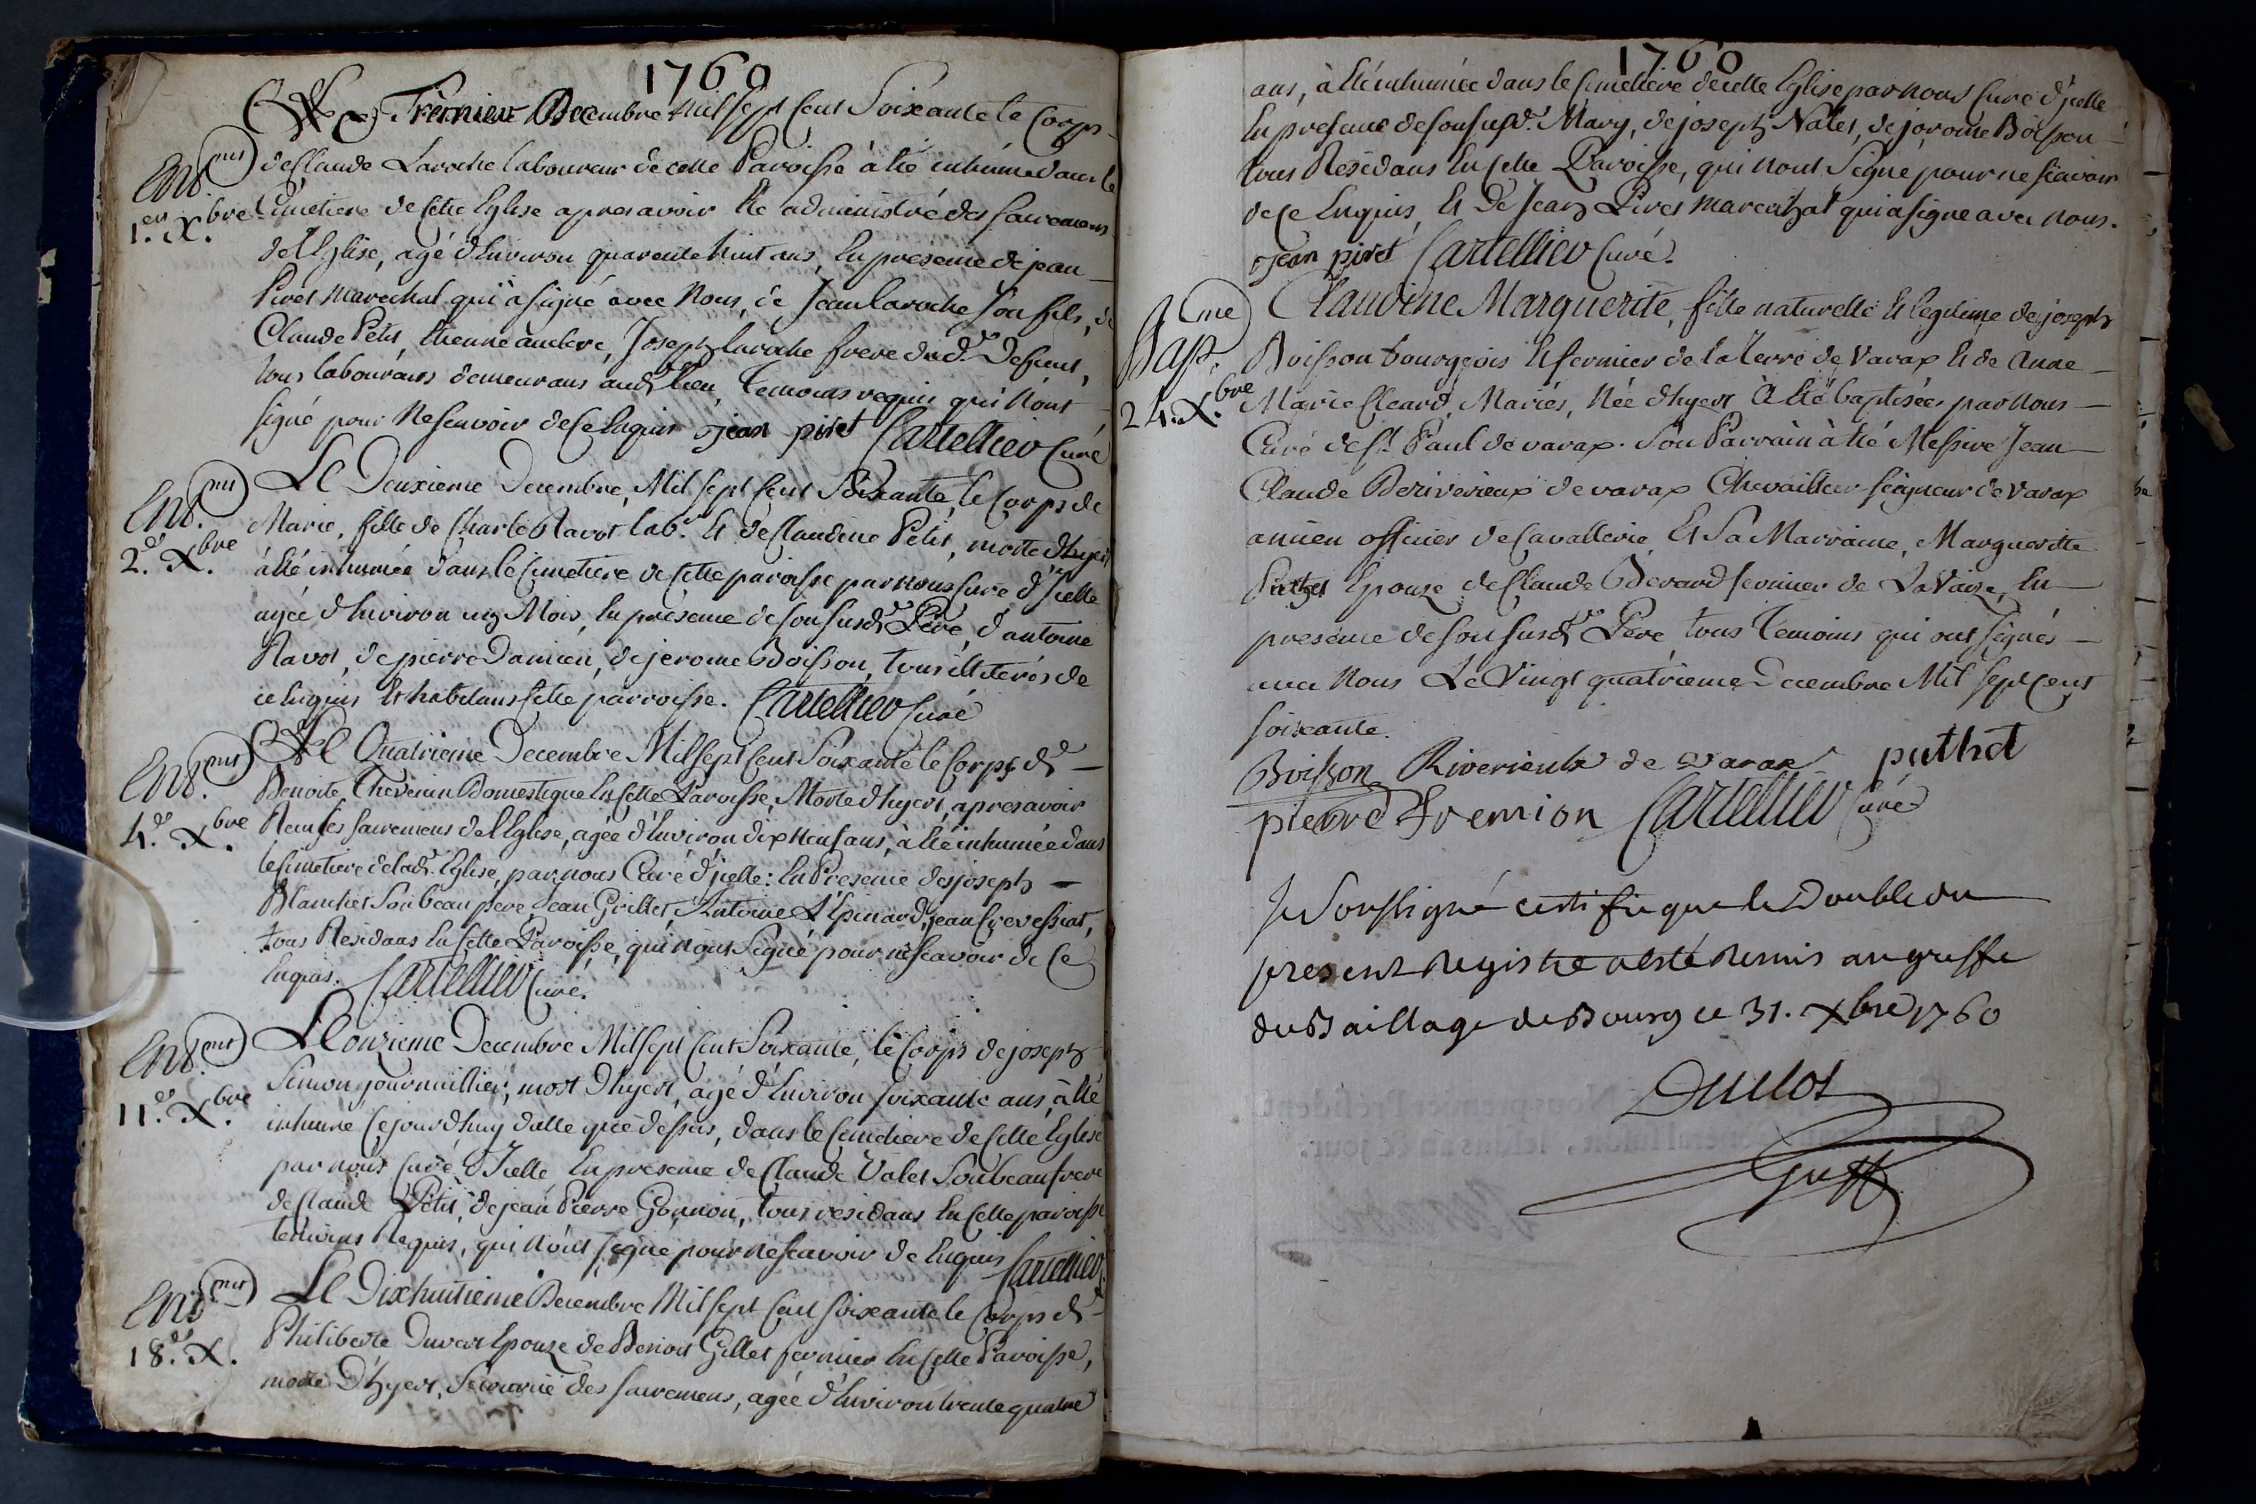 1760
Le Premier Decembre Mil sept Cent Soixante le Corps
Ent.ment de Claude Laroche laboureur de cette Paroisse à été inhumé dans le
1.er X.bre Cimetiere de cette Eglise apres avoir été administré des sacremens
de l'Eglise, agé d'Environ quarente huit ans, En presence de jean
Piret marechal qui à signé avec Nous, de Jean laroche son fils, de
Claude Petit, Etienne, Joseph laroche frere dud.t Defunt,
tous laboureurs demeurans aud.t lieu, Temoins requis qui n'ont
signé pour Ne scavoir de ce Enquis jean piret Cartellier Curé
Ent.ment Le Deuxieme Decembre, Mil sept Cent Soixante, le Corps de
Marie, fille de Charle Ravot lab.r Et de Claudine Petit, morte d'hyert
2.e X.bre à été inhumée dans le Cimetiere de Cette paroisse par nous Curé d'Icelle
agée d'Environ Mois, En présence de son susd.t Pere, d'antoine
Ravot, de pierre Damien, de jerome Boisson, tous illiterés de
ce Enquis Et habitans Cette parroisse. Cartellier Curé
Ent.ment Le Quatrieme Decembre Mil sept Cent Soixante le Corps de
Benoite Thevenin Domestique En Cette Paroisse, Morte d'hyert, apres avoir
4.e X.bre Recu ses sacremens de l'Eglise, agée d'Environ dix neuf ans, à été inhumée dans
le Cimetiere de lad.t Eglise, par nous Curé d'jcelle: En Presence de joseph
Blanchet Son beau pere, Jean Grillet, Antoine L'Epinard, jean,
tous Residans En Cette Paroisse, qui n'ont Signé pour ne scavoir de Ce
Enquis. Cartellier Curé.
Ent.ment Le onzieme Decembre Mil sept Cent Soixante, le Corps de joseph
Simon journaillier, mort d'hyert, agé d'Environ soixante ans, à été
11.e X.bre inhumé Cejourdhuy datte que dessus, dans le Cimetiere de Cette Eglise
par nous Curé d'Icelle, En presence de Claude Valet Son beau frere
de Claude Petit, de jean Pierre Gonnon, tous residans En Cette paroisse
temoins Requis, qui n'ont signé pour ne scavoir de Enquis Cartellier
Ent.ment Le Dixhuitieme Decembre Mil sept Cent soixante le Corps de
Philiberte Duvert Epouze de Benoit Gillet fermier En Cette Paroisse,
18.e X. morte D'hyert, des sacremens, agée d'Environ trente quatre
1760
ans, à été inhumée dans le Cimetiere de cette Eglise par nous Curé d'jcelle
En presence de son susd.t Mary, de joseph Nalet, de jerome Boisson
tous Residans En Cette Paroisse, qui n'ont Signé pour ne scavoir
de Ce Enquis, Et De Jean Piret marechal qui a signé avec nous.
jean piret Cartellier Curé.
Bap.me Claudine Marguerite, fille naturelle Et legitime de joseph
Boisson bourgeois Et fermier de la Terre de Varax Et de Anne
24. X.bre Marie Cleard, Mariés, Née d'hyert à été baptisée par Nous
Curé de S.t Paul de varax. Son Parrain à été Messire Jean
Claude Deriverieux de varax Chevaillier seigneur de Varax
ancien officier de Cavallerie Et Sa Marraine, Marguerite
Puthet Epouze de Claude Berard fermier de La Vaize, En
presence de Son susd.t Pere, tous Temoins qui ont signés
avec Nous Le Vingt quatrieme Decembre Mil sept Cent
soixante.
Boisson Riverieulx de varax puthet
pierre Fremion Cartellier Curé
Je Soussigné certifie que le Double du
present Registre a esté Remis au greffe
du Baillage de Bourg ce 31. Xbre 1760
Duclot
Greff